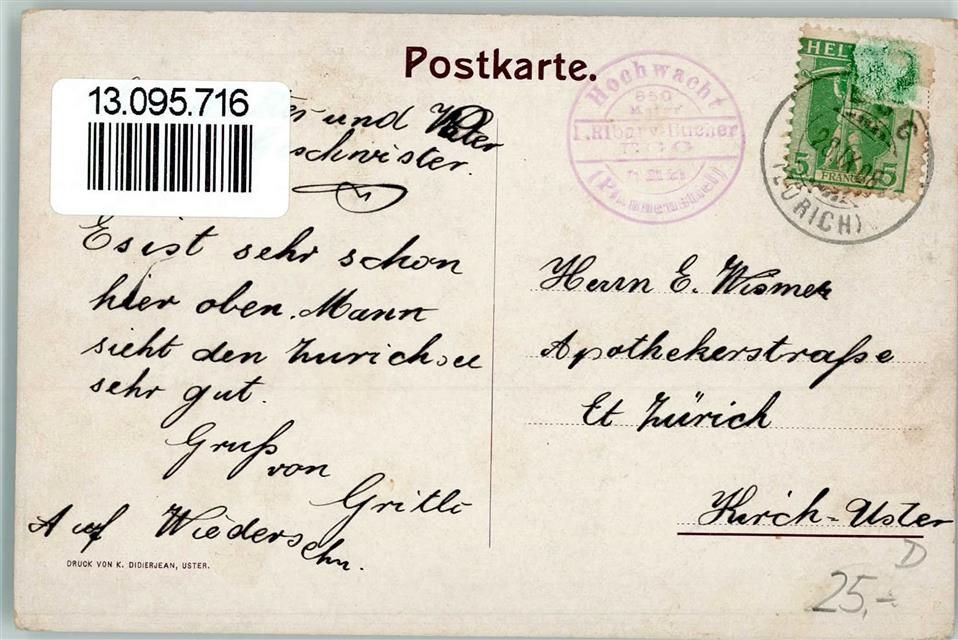 Postkarte.
13.095.716
und Vater
schwister.
Es ist sehr schon
hier oben. Mann
sieht den Zurichsee
sehr gut.
Gruß
von
Gritli
Auf Wiedersehn.
DRUCK VON K. DIDIERJEAN, USTER.
Hochwacht
850
Meter
J. Ribary-Bucher
EGG
(Pfannenstiel)
HELV
5 5
FRANCO
(ZÜRICH)
Herrn E. Wismer
Apothekerstraße
Ct Zürich
Kirch-Uster
D
25,-